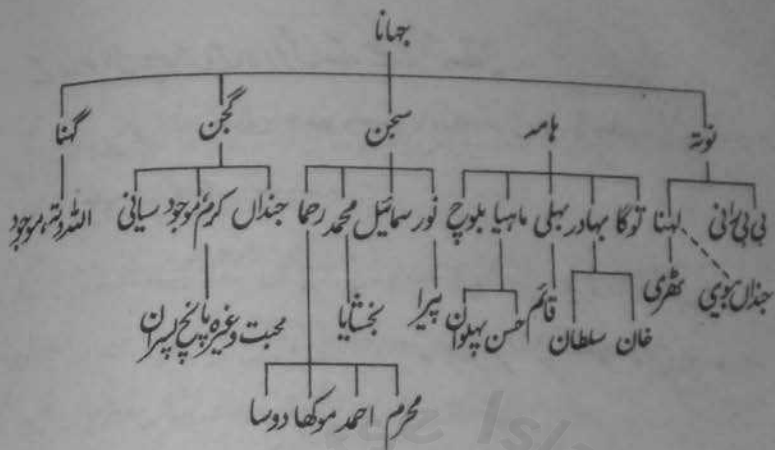 جہانا
نوتہ ہامہ سجن گجن گہنا
بی بی رانی لہنا توگا بہادر بہلی ماہیا بلوچ نور سمائیل محمد رحما جنداں کرم موجود سیانی اللہ دتہ، موجود
جنداں بیوی ٹھری خان سلطان قائم حسن پہلوان پیرا بخشایا محبت وغیرہ پانچ پسران
محرم احمد موکھا دوسا